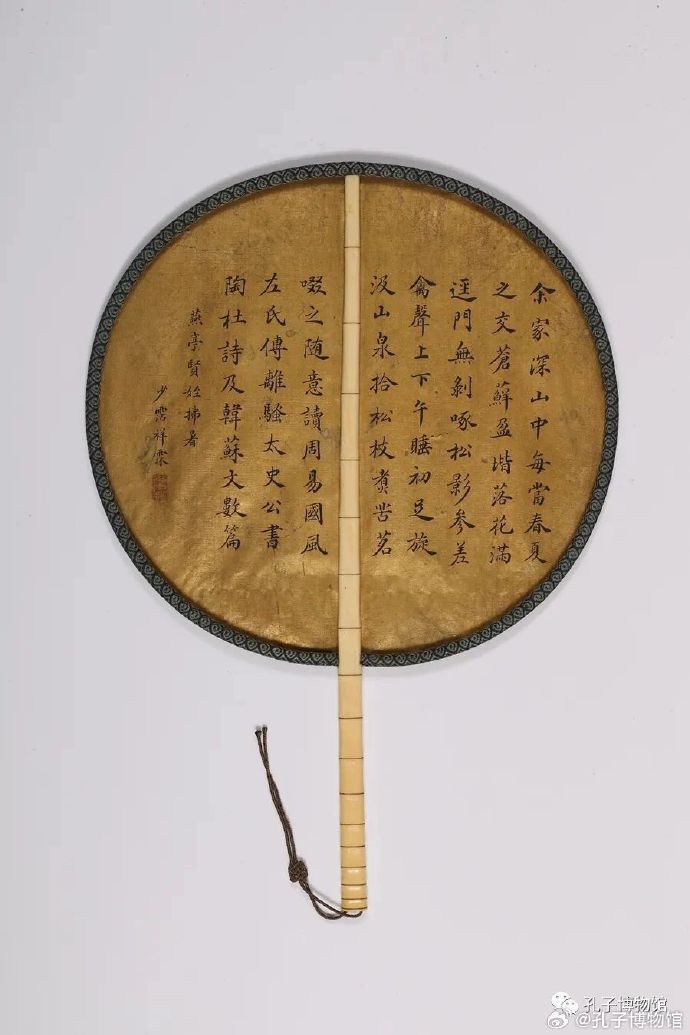 余家深山中每當春夏
之交蒼蘚盈堦落花滿
逕門無剝啄松影參差
禽聲上下午睡初足旋
汲山泉拾松枝煑苦茗
啜之随意讀周易國風
左氏傳離騷太史公書
陶杜詩及韓蘇文數篇
燕亭賢姪拂暑
少霑祥霖
孔子博物馆
@孔子博物馆